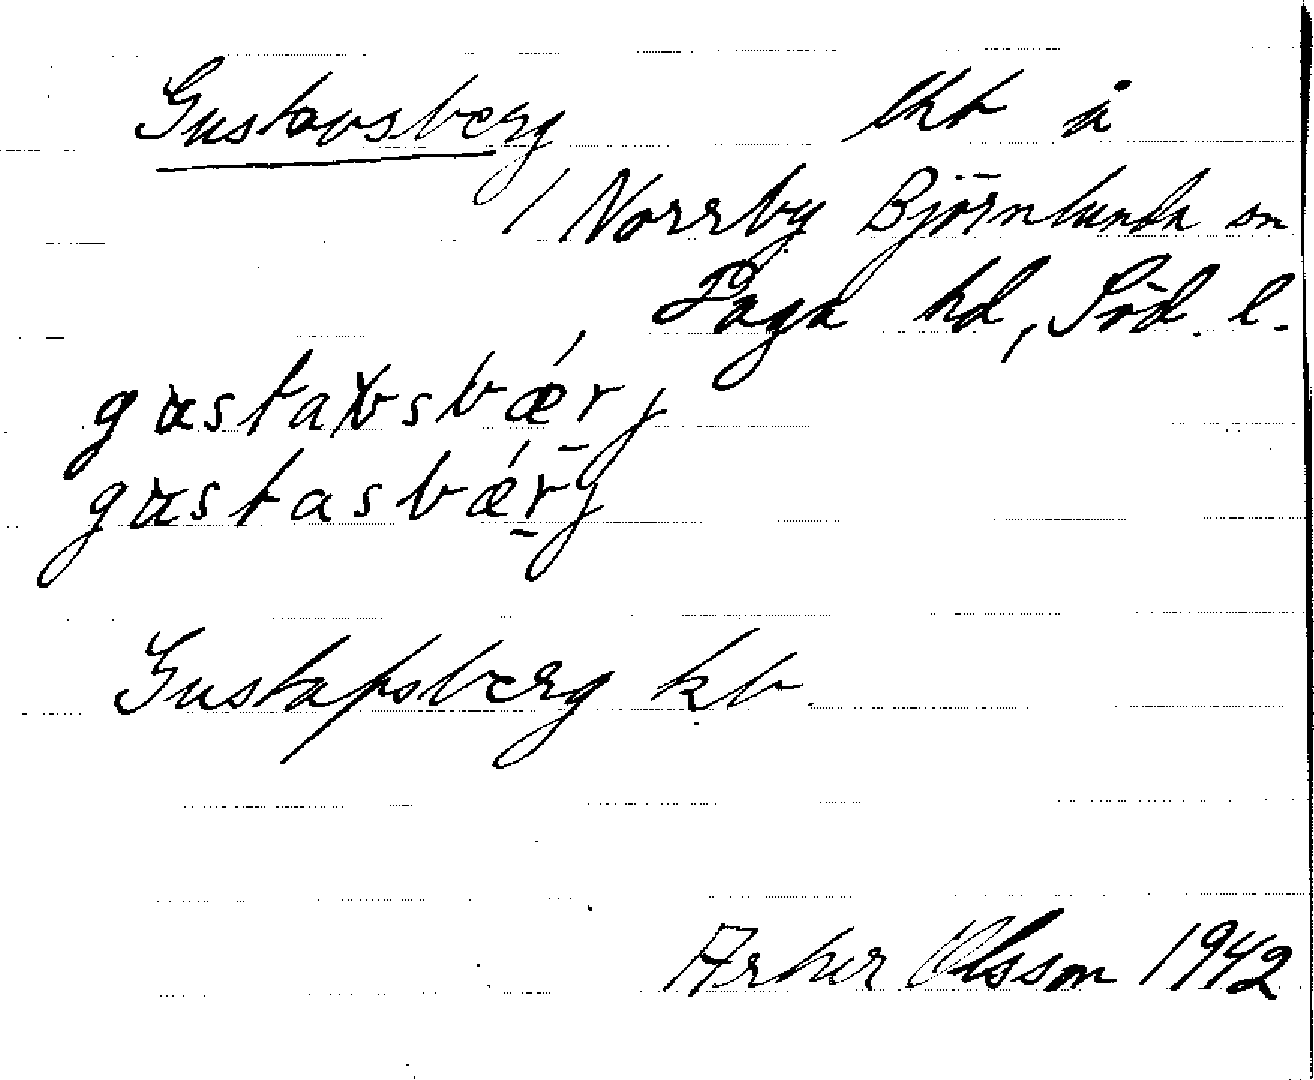 Gustavsberg lht å
/ Norrby Björnlunda sn
Daga hd, Söd. l.
gustavsbǽrj
gustasbǽrj
Gustafsberg kb
Artur Olsson 1942